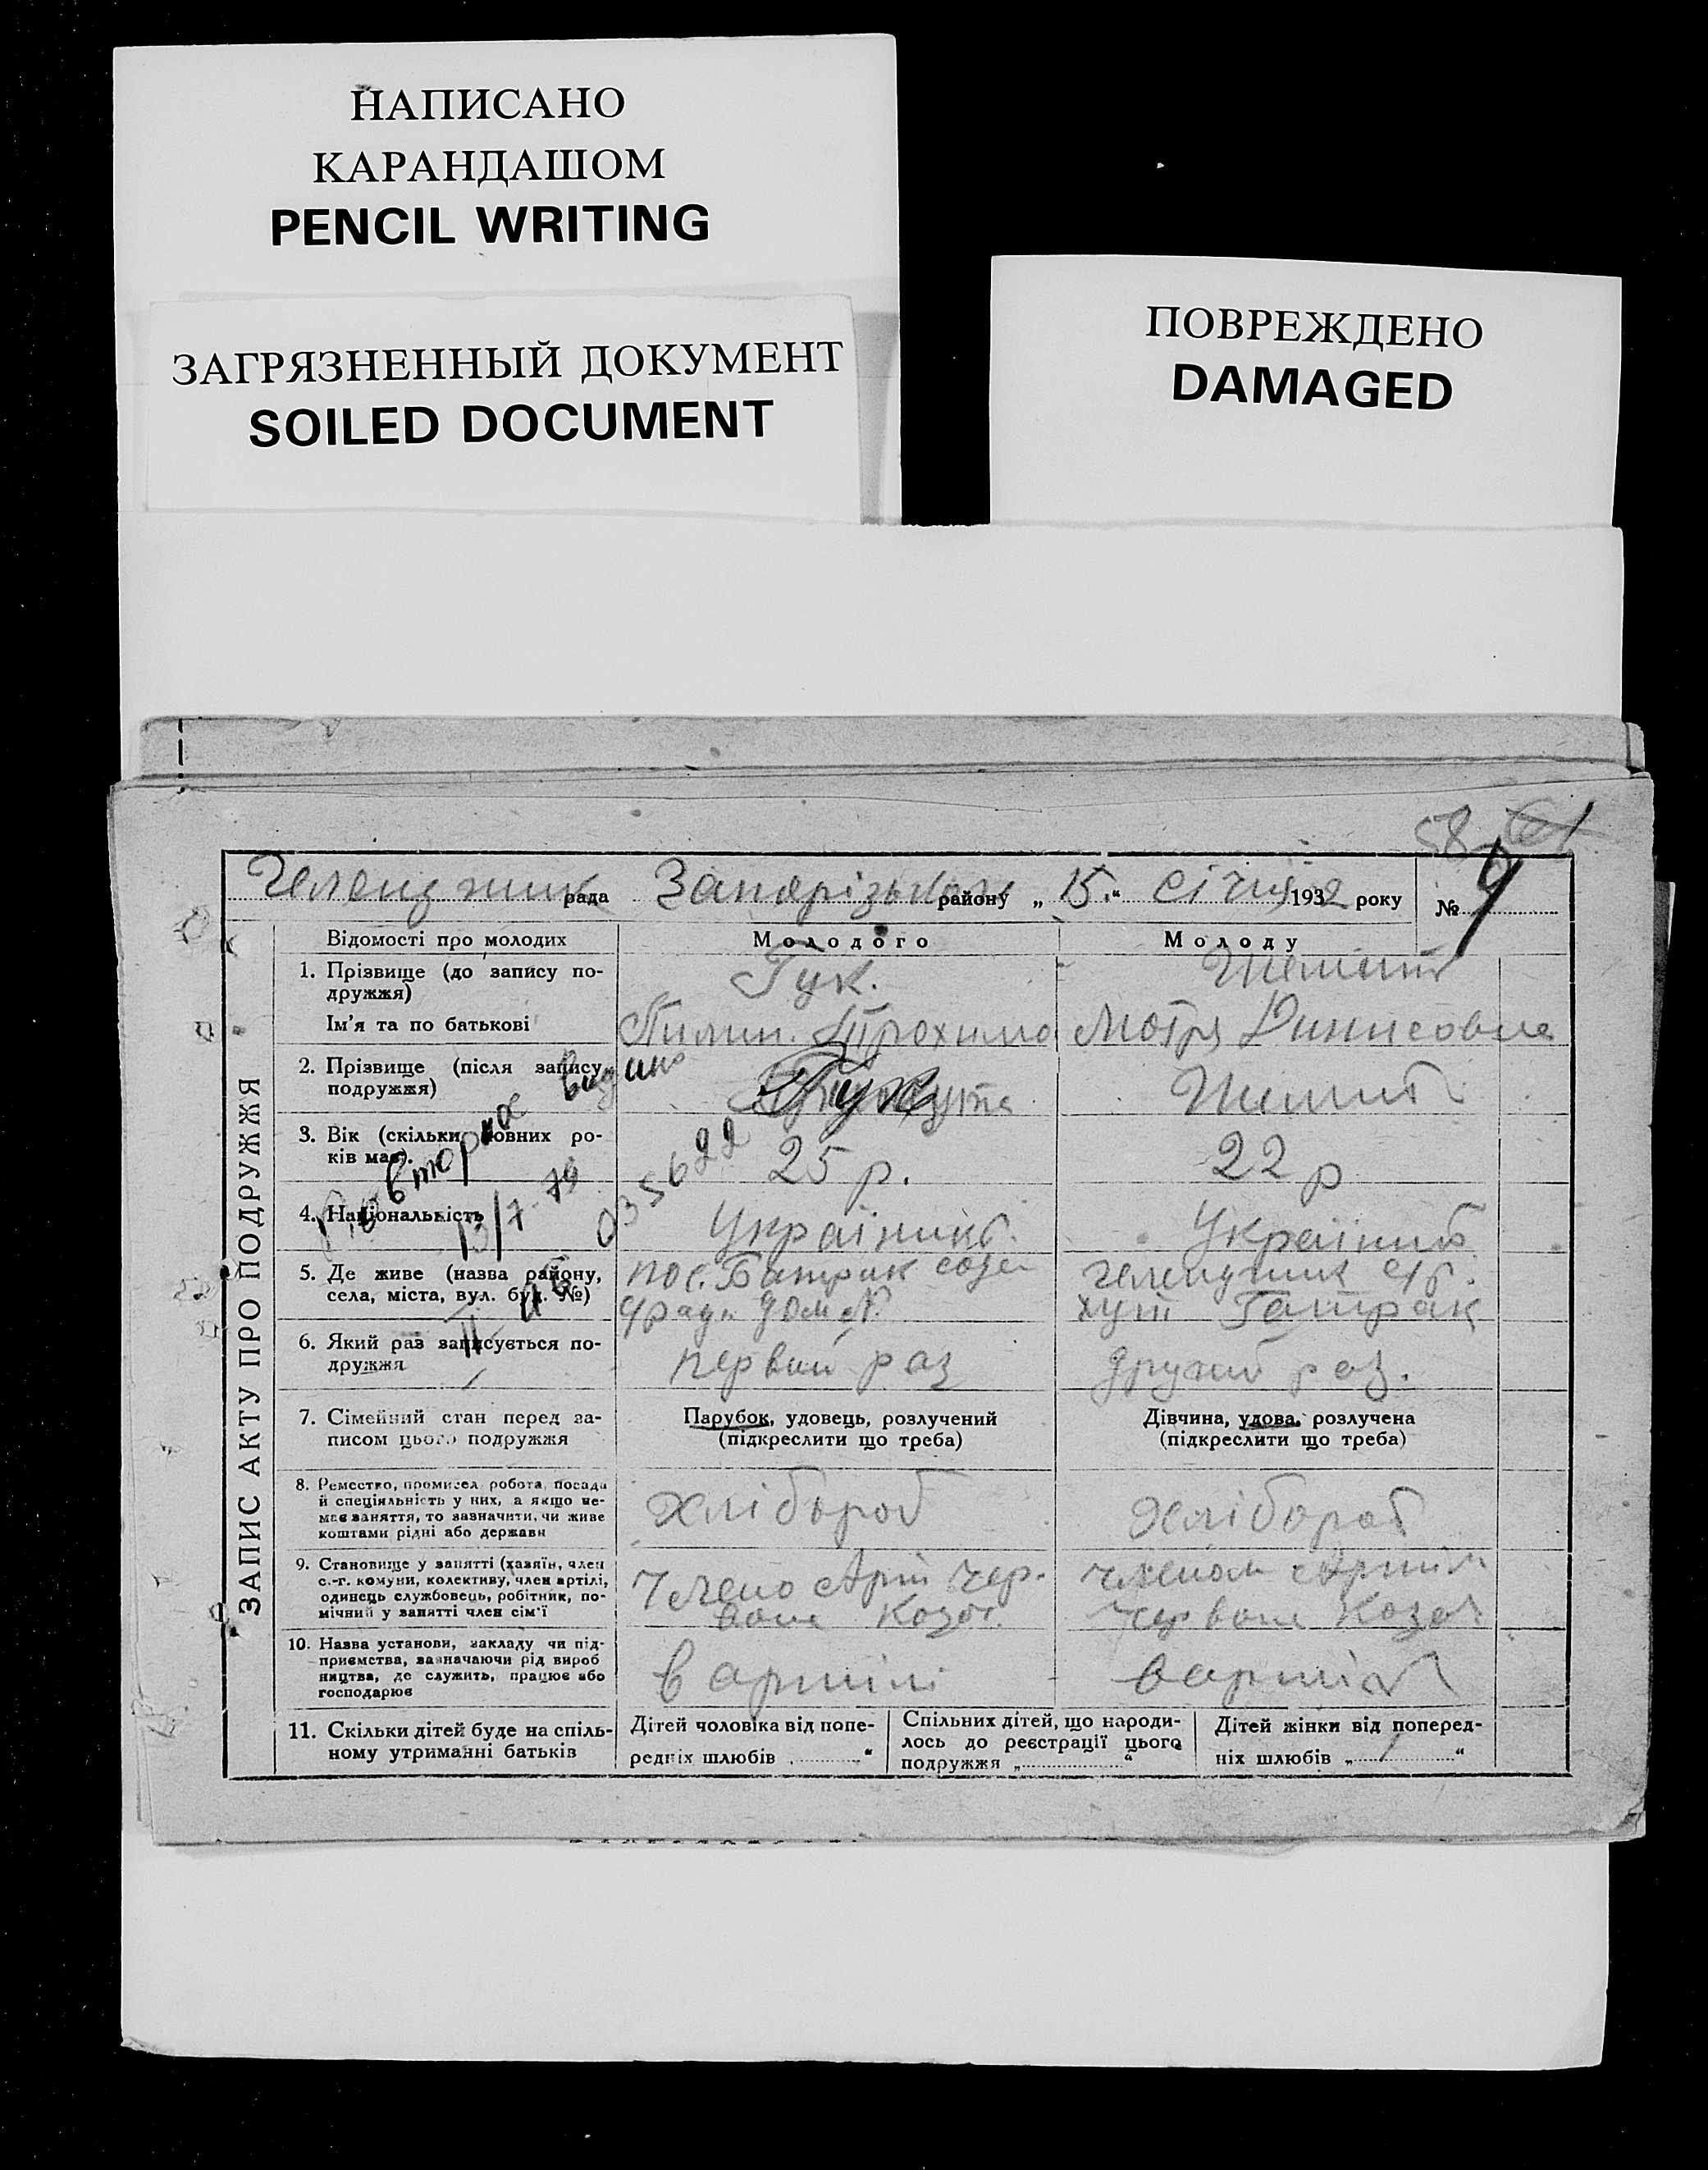 НАПИСАНО
КАРАНДАШОМ
PENCIL WRITING
ЗАГРЯЗНЕННЫЙ ДОКУМЕНТ
SOILED DOCUMENT
ПОВРЕЖДЕНО
DAMAGED
58
рада Запорізького району „15.“ січня 1932 року № 9
ЗАПИС АКТУ ПРО ПОДРУЖЖЯ
Відомості про молодих
Молодого
Молоду
1. Прізвище (до запису по-
дружжя)
Гук.
Ім'я та по батькові
Пилип. Трохимо
Мотря Динисовна
2. Прізвище (після запису
подружжя)
Гук
3. Вік (скільки повних ро-
ків має).
25 р.
22 р
Повторное видано
13/7-79
035622
4. Національність
5. Де живе (назва району,
села, міста, вул. буд. №)
пос. Батрак
дом №
хут Батрак
6. Який раз записується по-
дружжя
первий раз
другий раз.
7. Сімейний стан перед за-
писом цього подружжя
Парубок, удовець, розлучений
(підкреслити що треба)
Дівчина, удова, розлучена
(підкреслити що треба)
8. Ремество, промисел робота, посада
й спеціяльність у них, а якщо не-
має заняття, то зазначити, чи живе
коштами рідні або держави
хлібороб
хлібороб
9. Становище у занятті (хазяїн, член
с.-г. комуни, колективу, член артілі,
одинець службовець, робітник, по-
мічний у занятті член сім'ї
Члено Арт Чер-
воне Козац
членом Артіл
Червоне Козац
10. Назва установи, закладу чи під-
приємства, зазначаючи рід вироб
ництва, де служить, працює або
господарює
в артілі
в артіл
11. Скільки дітей буде на спіль-
ному утриманні батьків
Дітей чоловіка від попе-
редніх шлюбів „ “
Спільних дітей, що народи-
лось до реєстрації цього
подружжя „ “
Дітей жінки від поперед-
ніх шлюбів „ 1 “